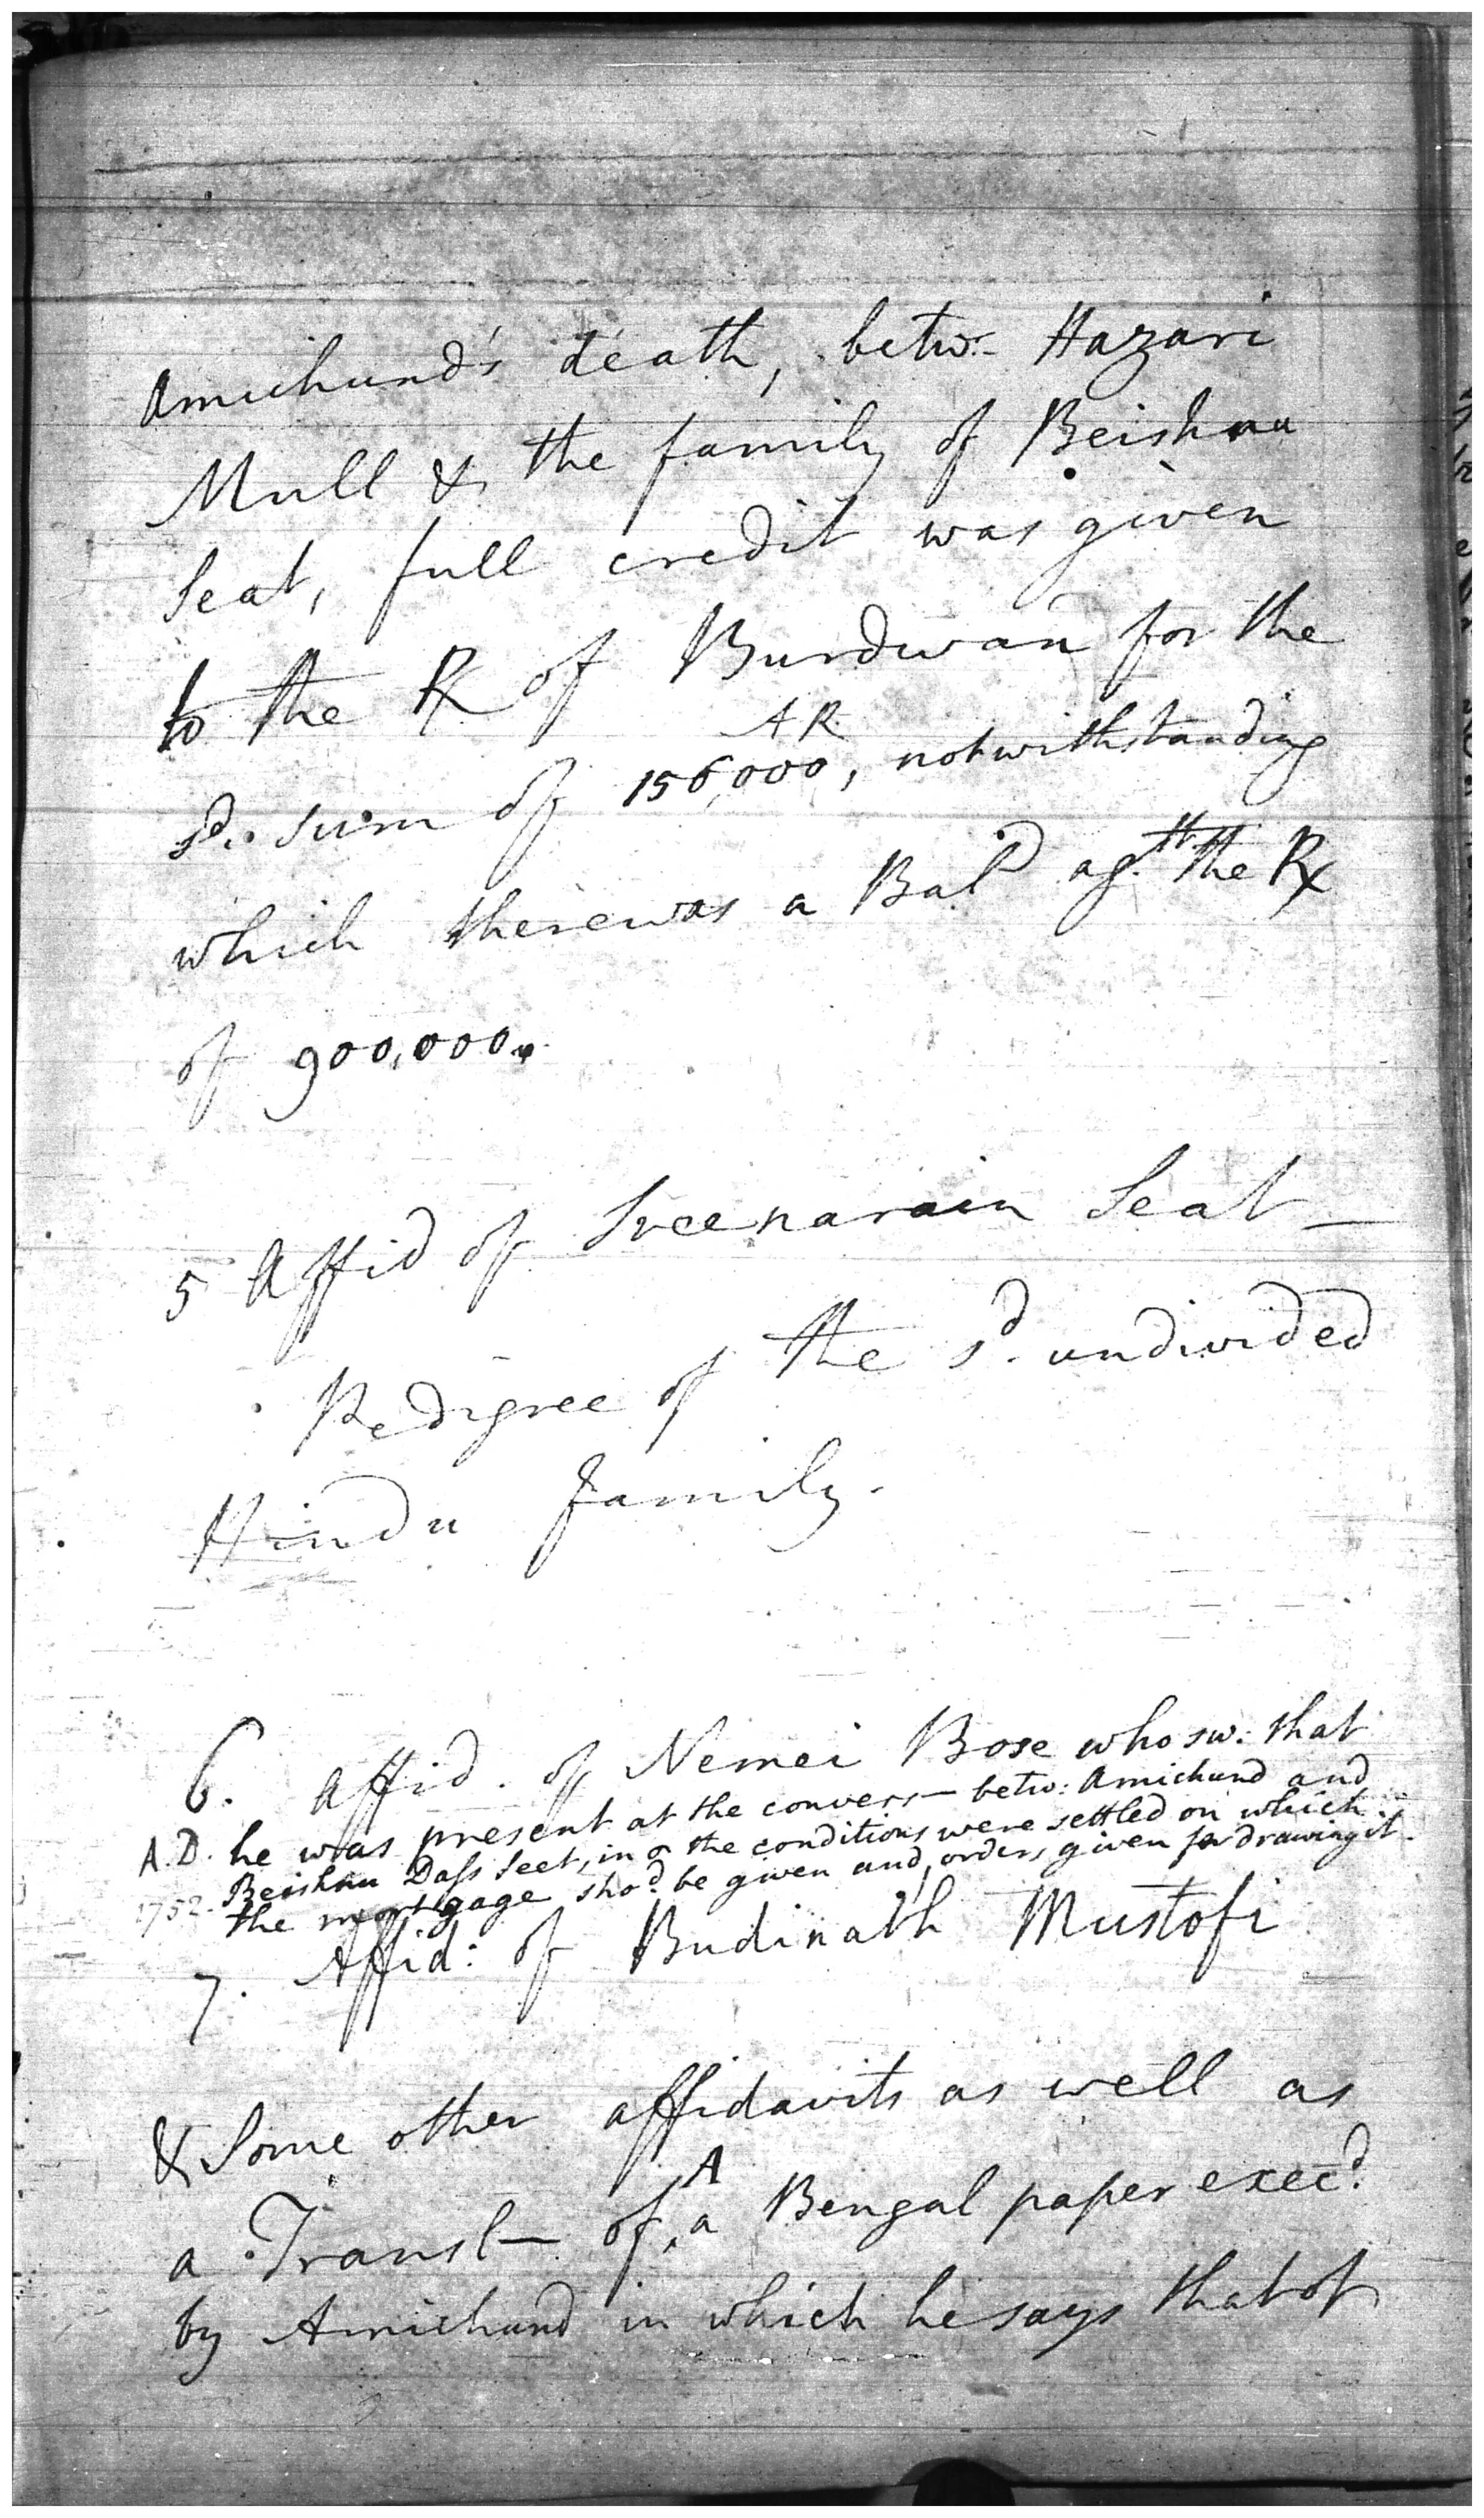 Amichund's death, betw. Hazari
Mull & the family of Beishnu
Seat, full credit was given
to the R of Burdwan for the
AR
sd. sum of 156,000, notwithstanding
which there was a Bal agt. the R
of 900,000.
5 Affid of Sreenarain Seat —
Pedigree of the sd. undivided
Hindu family.
6. Affid. of Nemei Bose who sw: that
A.D. he was present at the convers— betw: Amichund and
1752. Beishnu Dass Seet, in the conditions were settled on which
the mortgage shod. be given and orders given for drawing it.
7. Affid: of Budinath Mustofi
& Some other affidavits as well as
A
a Transl— of a Bengal paper execd.
by Amichund in which he says that of